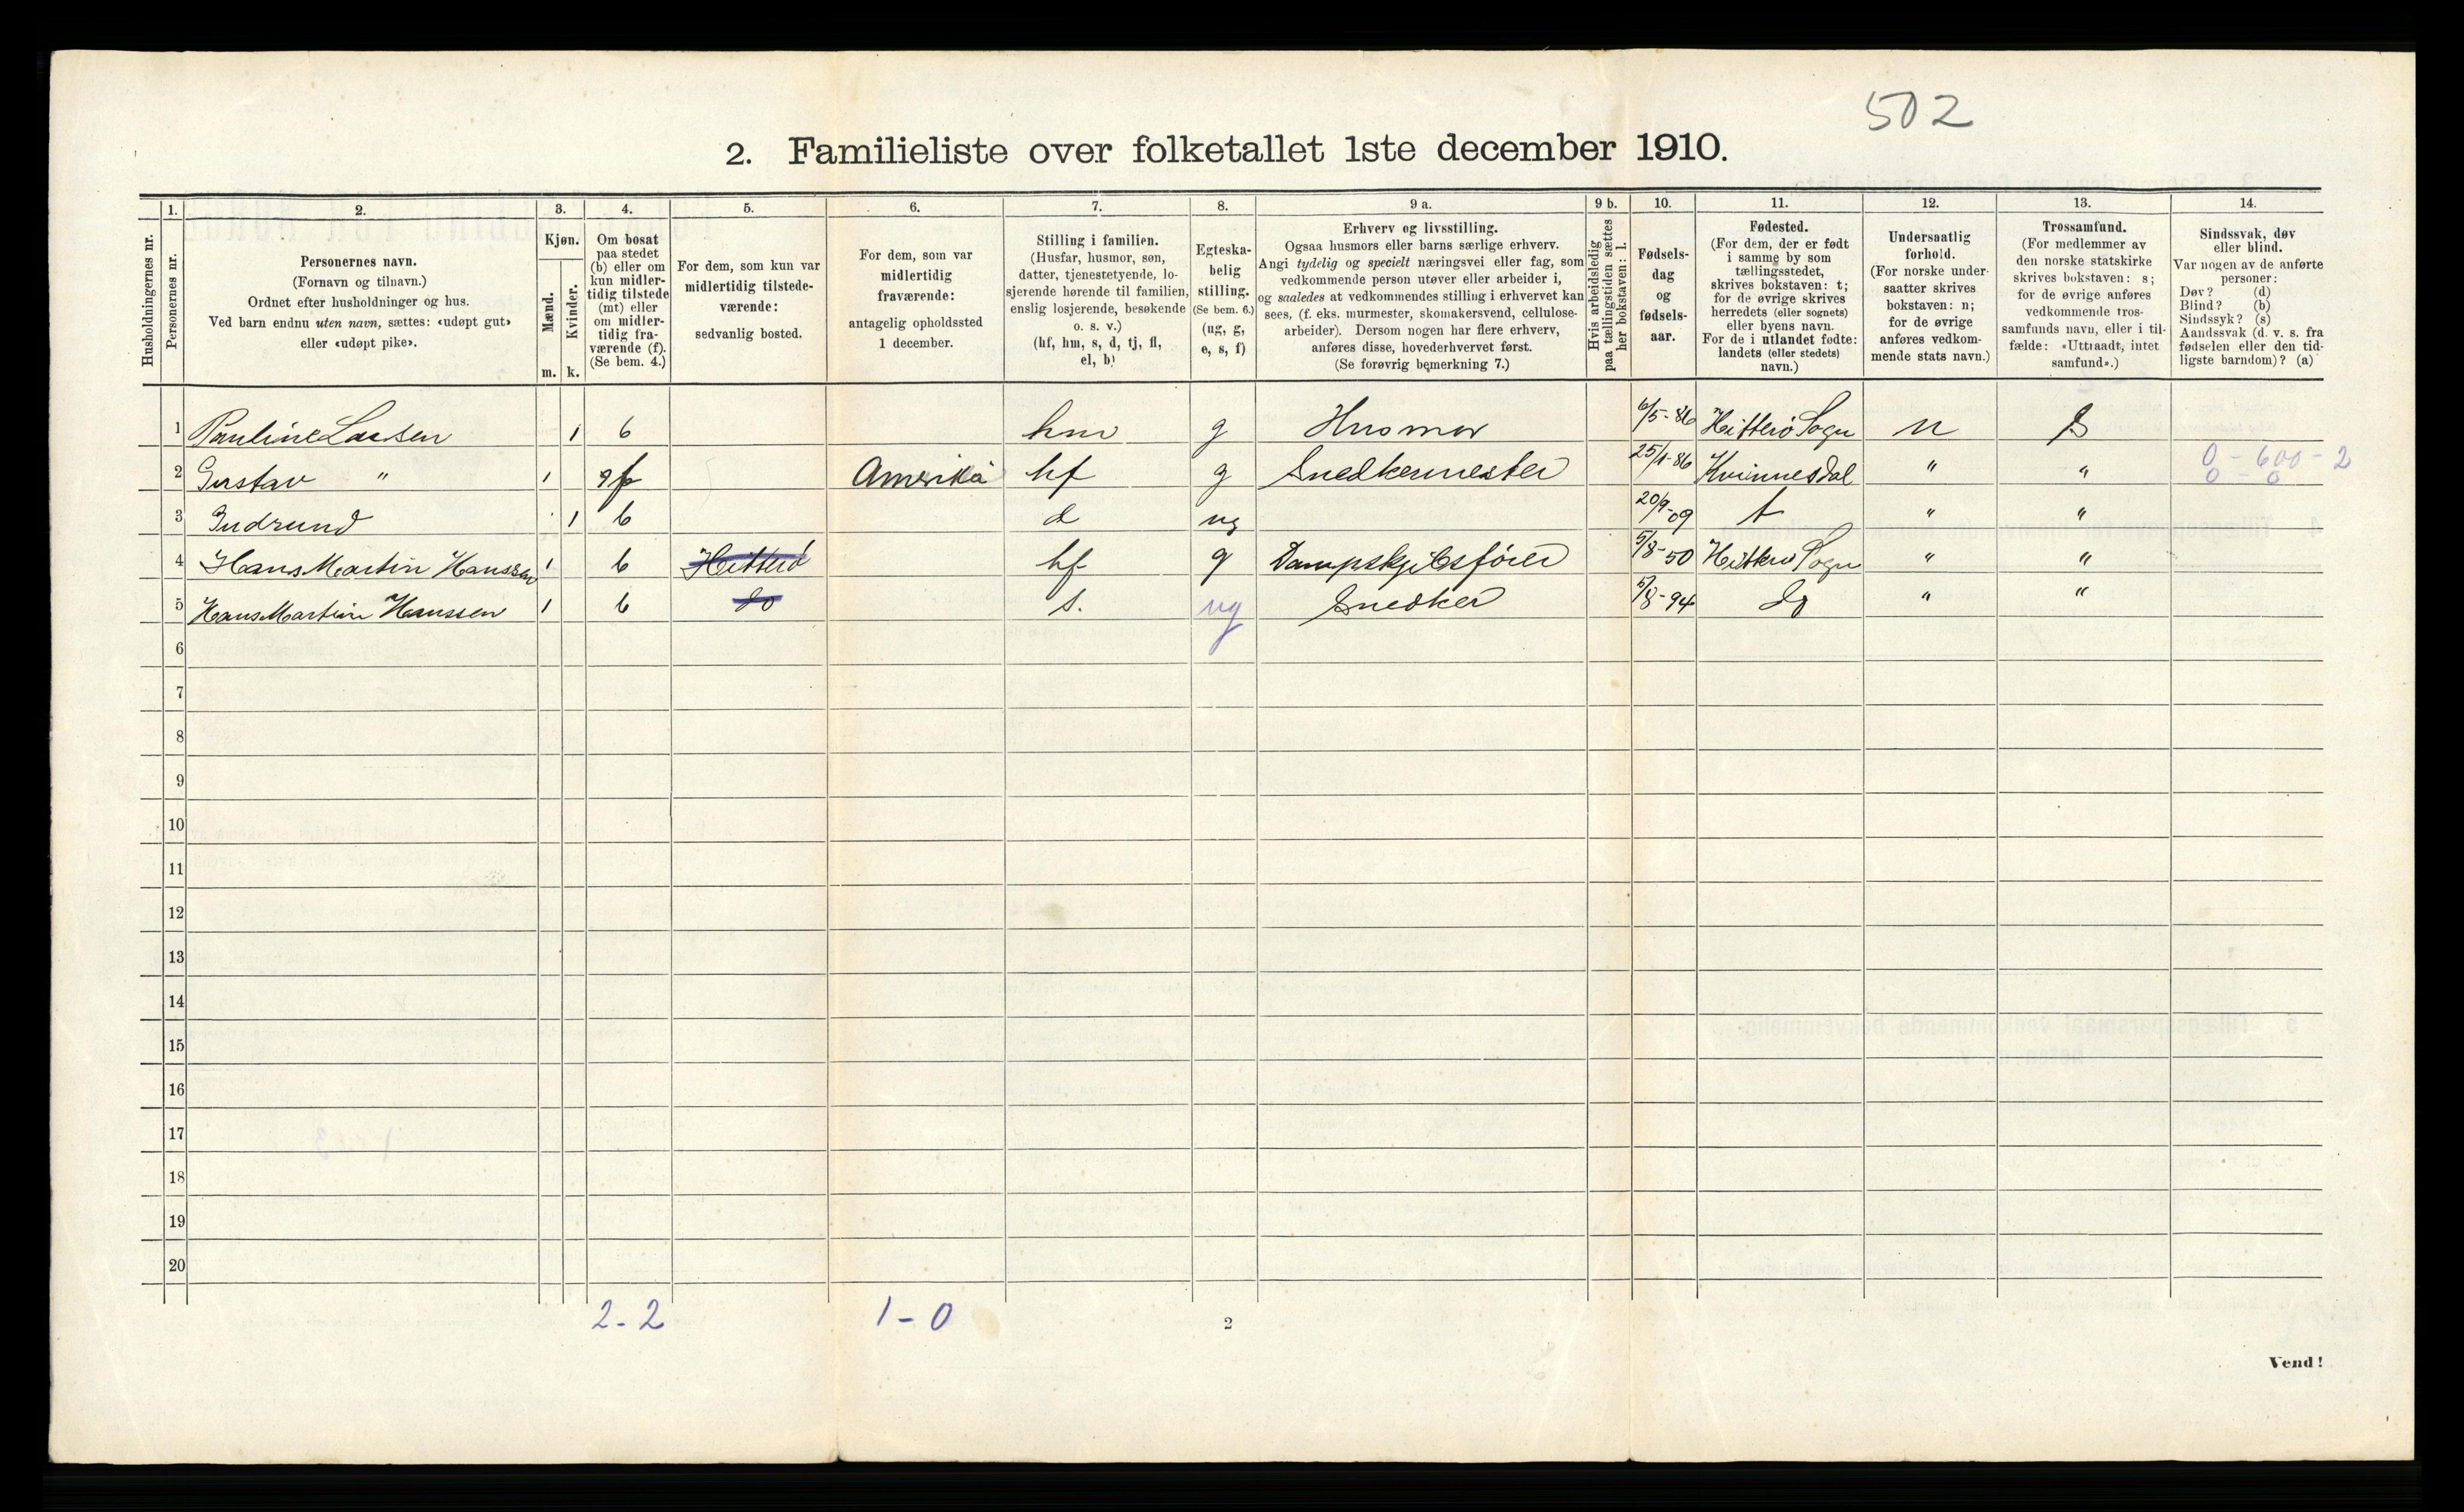 502
2. Familieliste over folketallet 1ste december 1910.
Husholdningernes nr.
1. Personernes nr.
2. Personernes navn.
(Fornavn og tilnavn.)
Ordnet efter husholdninger og hus.
Ved barn endnu uten navn, sættes: «udøpt gut»
eller «udøpt pike».
3. Kjøn.
Mænd. m.
Kvinder. k.
4. Om bosat
paa stedet
(b) eller om
kun midler-
tidig tilstede
(mt) eller
om midler-
tidig fra-
værende (f).
(Se bem. 4.)
5. For dem, som kun var
midlertidig tilstede-
værende:
sedvanlig bosted.
6. For dem, som var
midlertidig
fraværende:
antagelig opholdssted
1 december.
7. Stilling i familien.
(Husfar, husmor, søn,
datter, tjenestetyende, lo-
sjerende hørende til familien,
enslig losjerende, besøkende
o. s. v.)
(hf, hm, s, d, tj, fl,
el, b)
8. Egteska-
belig
stilling.
(Se bem. 6.)
(ug, g,
e, s, f)
9 a. Erhverv og livsstilling.
Ogsaa husmors eller barns særlige erhverv.
Angi tydelig og specielt næringsvei eller fag, som
vedkommende person utøver eller arbeider i,
og saaledes at vedkommendes stilling i erhvervet kan
sees, (f. eks. murmester, skomakersvend, cellulose-
arbeider). Dersom nogen har flere erhverv,
anføres disse, hovederhvervet først.
(Se forøvrig bemerkning 7.)
9 b. Hvis arbeidsledig
paa tællingstiden sættes
her bokstaven: l.
10. Fødsels-
dag
og
fødsels-
aar.
11. Fødested.
(For dem, der er født
i samme by som
tællingsstedet,
skrives bokstaven: t;
for de øvrige skrives
herredets (eller sognets)
eller byens navn.
For de i utlandet fødte:
landets (eller stedets)
navn.)
12. Undersaatlig
forhold.
(For norske under-
saatter skrives
bokstaven: n;
for de øvrige
anføres vedkom-
mende stats navn.)
13. Trossamfund.
(For medlemmer av
den norske statskirke
skrives bokstaven: s;
for de øvrige anføres
vedkommende tros-
samfunds navn, eller i til-
fælde: «Uttraadt, intet
samfund».)
14. Sindssvak, døv
eller blind.
Var nogen av de anførte
personer:
Døv? (d)
Blind? (b)
Sindssyk? (s)
Aandssvak (d. v. s. fra
fødselen eller den tid-
ligste barndom)? (a)
1 Pauline Larsen 1 b hm g Husmor 6/5-86 Hitterø Sogn n s
2 Gustav " 1 f Amerika hf g Snedkermester 25/1-86 Kvinnesdal " " 0-600-2
0 0
3 Gudrund 1 b d ug 20/9-09 t " "
4 Hans Martin Hanssen 1 b Hitterø hf g Dampskjibsfører 5/8-50 Hitterø Sogn " "
5 Hans Martin Hanssen 1 b do s. ug Snedker 5/8-94 do " "
6
7
8
9
10
11
12
13
14
15
16
17
18
19
20
2-2 1-0
2
Vend!